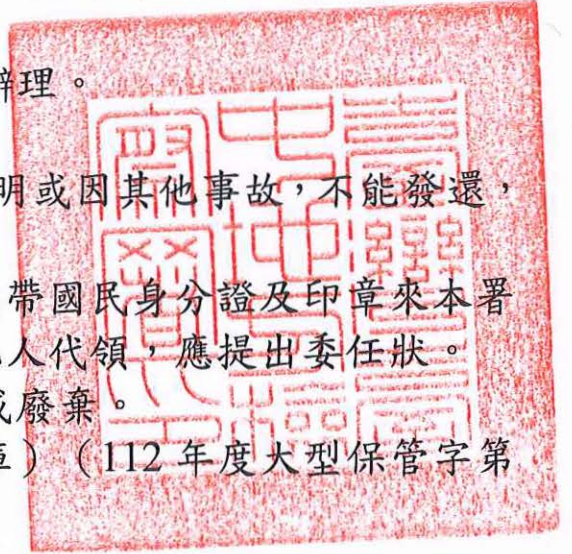 辦理。
明或因其他事故，不能發還，
帶國民身分證及印章來本署
人代領，應提出委任狀。
或廢棄。
）（112年度大型保管字第